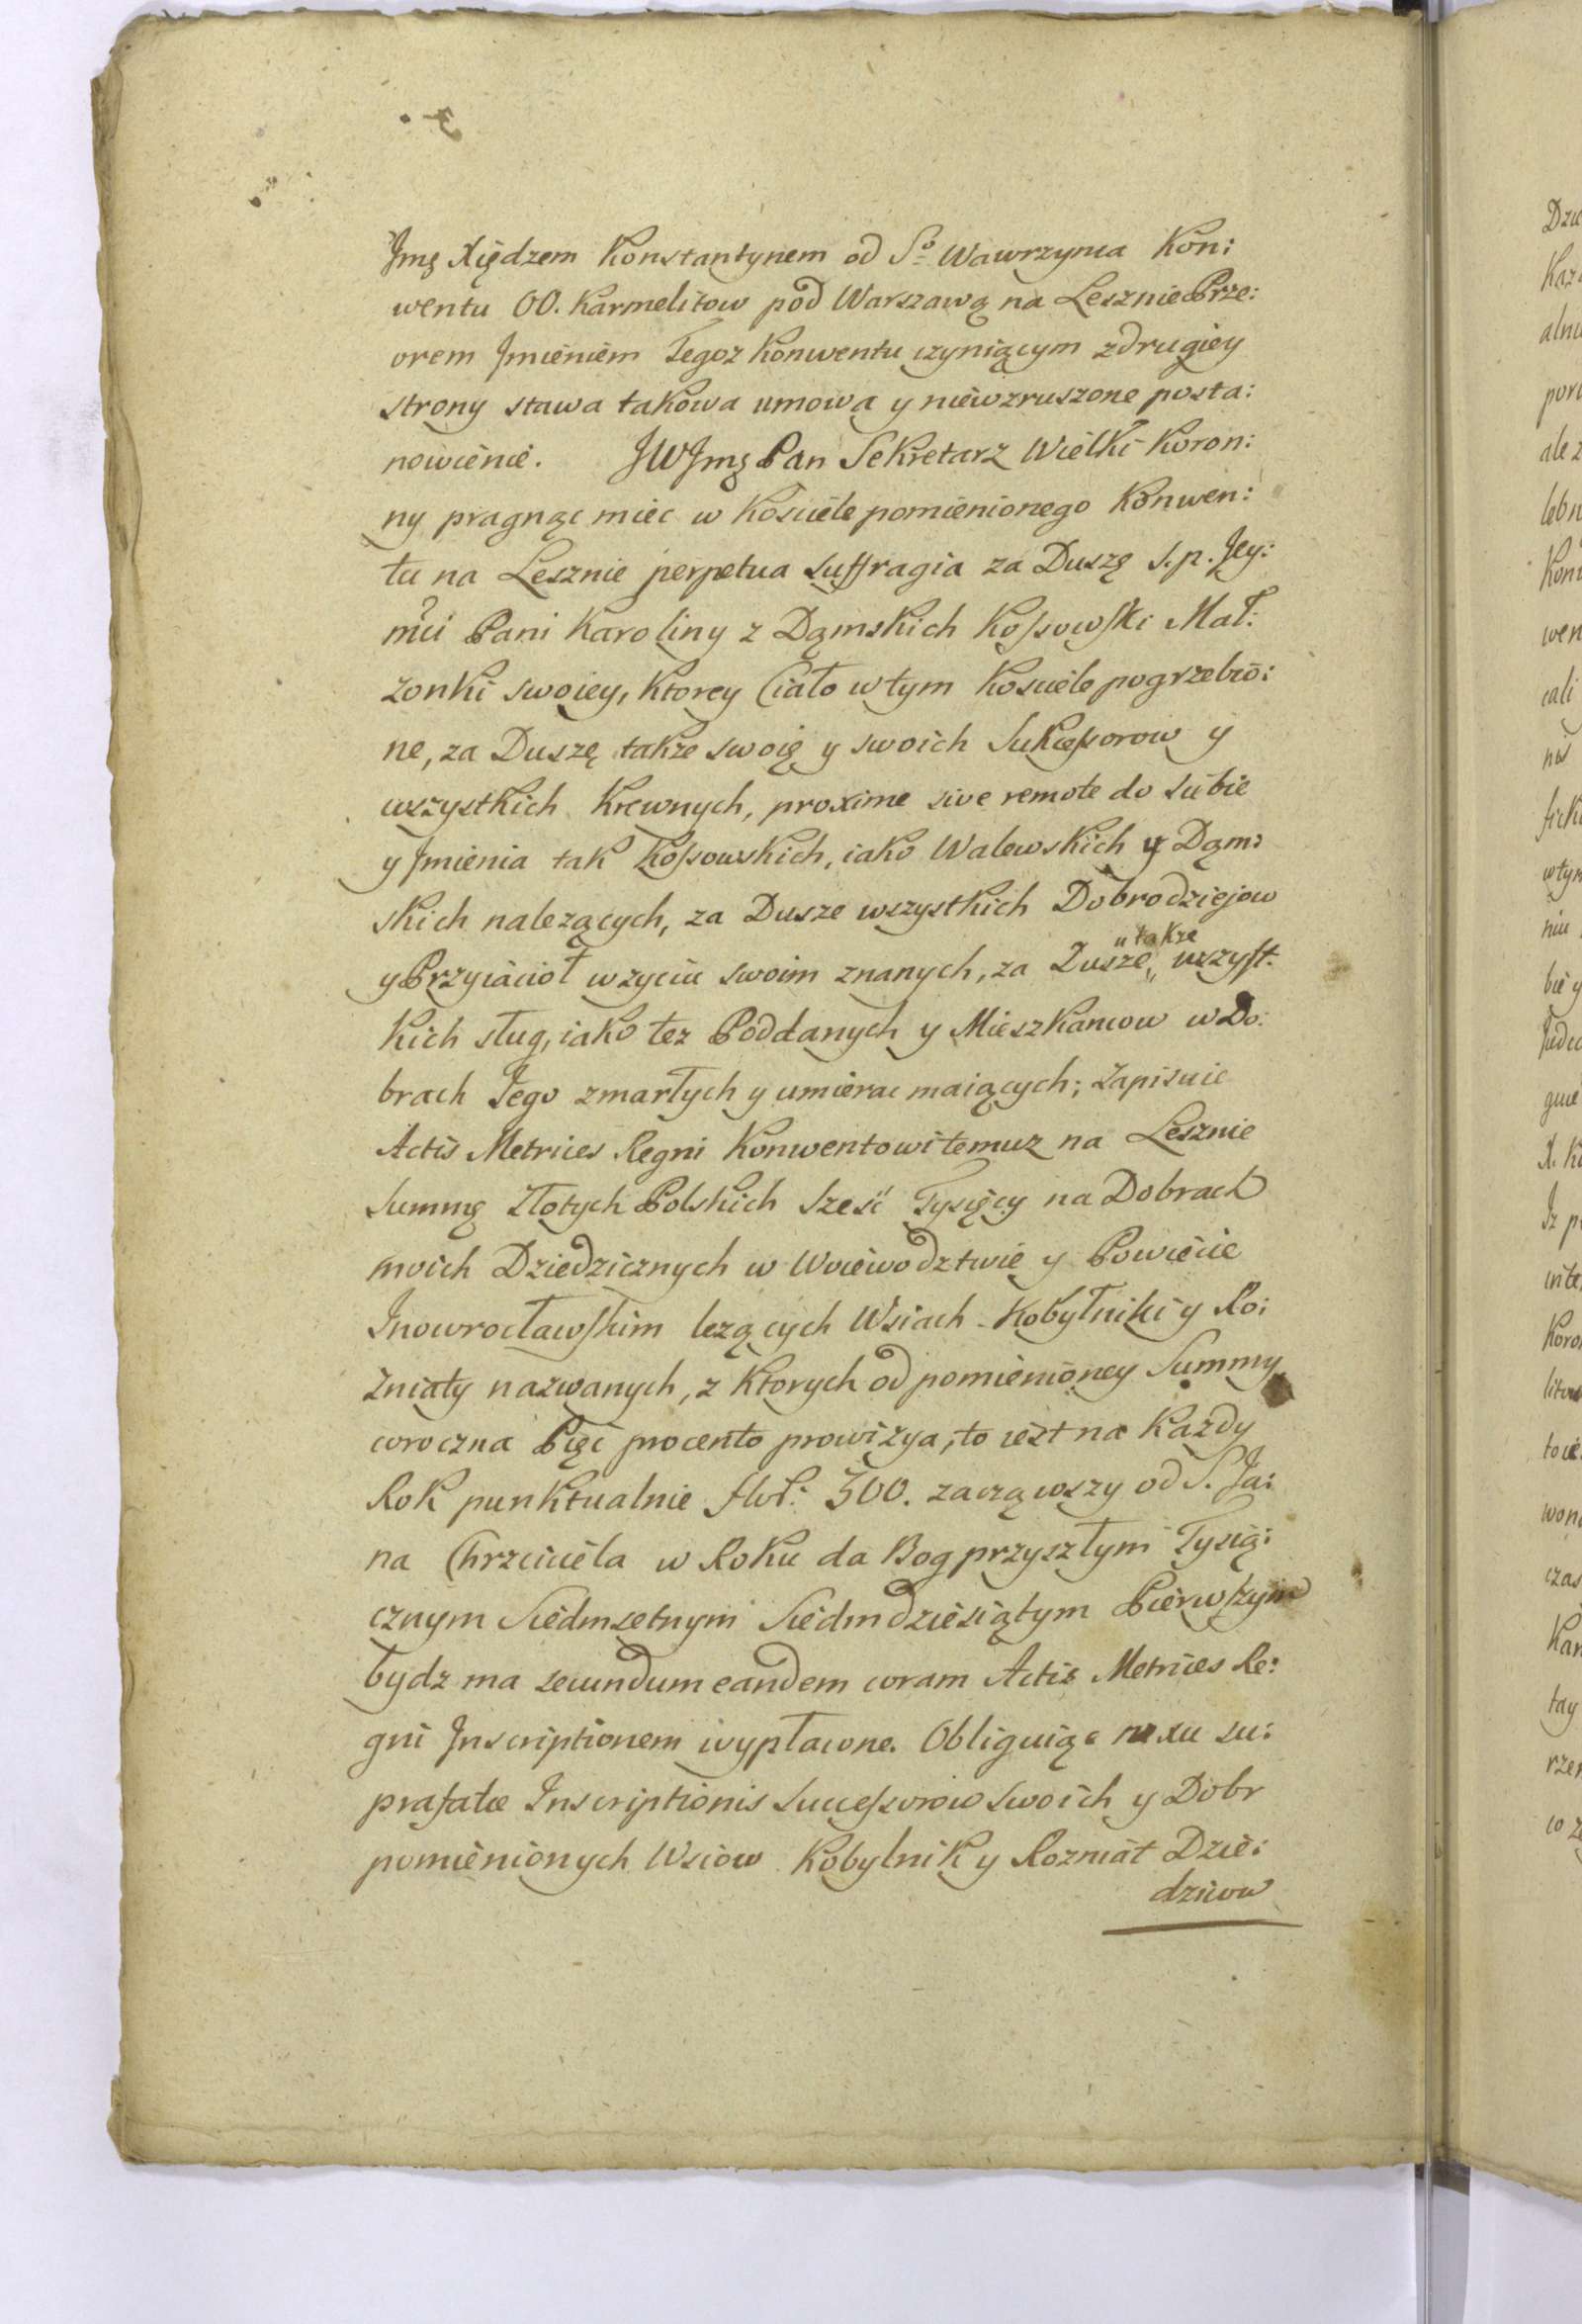 Jmę Xiędzem Konstantynem od Sº Wawrzynca Kon:
wentu OO. Karmelitow pod Warszawą na Lesznie Prze:
orem Jmieniem Tegoz Konwentu czyniącym z drugiey
strony stawa takowa umowa y niewzruszone posta:
nowienie. JWJmę Pan Sekretarz Wielki Koron:
ny pragnąc miec w Kosciele pomienionego Konwen:
tu na Lesznie perpetua suffragia za Duszę s. p. Jey:
mci Pani Karoliny z Dąmskich Kossowski Mał:
zonki swoiey, Ktorey Ciało w tym Kosciele pogrzebio:
ne, za Duszę takze swoię y swoich Sukcessorow y
wszystkich Krewnych, proxime sive remote do siebie
y Jmienia tak Kossowskich, iako Walewskich y Dąm:
skich nalezących, za Dusze wszystkich Dobrodziejow
y Przyiacioł w zyciu swoim znanych, za Dusze „takze„ wszyst:
kich sług, iako tez Poddanych y Mieszkancow w Do:
brach Jego zmarłych y umierac maiących; Zapisuie
Actis Metrices Regni Konwentowi temuz na Lesznie
Summę Złotych Polskich Szesć Tysięcy na Dobrach
moich Dziedzicznych w Woiewodztwie y Powiecie
Jnowrocławskim lezących Wsiach Kobylniki y Ro:
zniaty nazwanych, z Ktorych od pomienioney Summy
coroczna Pięć procento prowizya, to iest na Kazdy
Rok punktualnie flor: 300. zacząwszy od S. Ja:
na Chrzciciela w Roku da Bog przyszłym Tysią:
cznym Siedmsetnym Siedmdziesiątym Pierwszym
bydz ma secundum eandem coram Actis Metrices Re:
gni Jnscriptionem wypłacone. Obliguiąc nexu su:
prafatæ Inscriptionis Successorow swoich y Dobr
pomienionych Wsiow Kobylnik y Rozniat Dzie:
dzicow